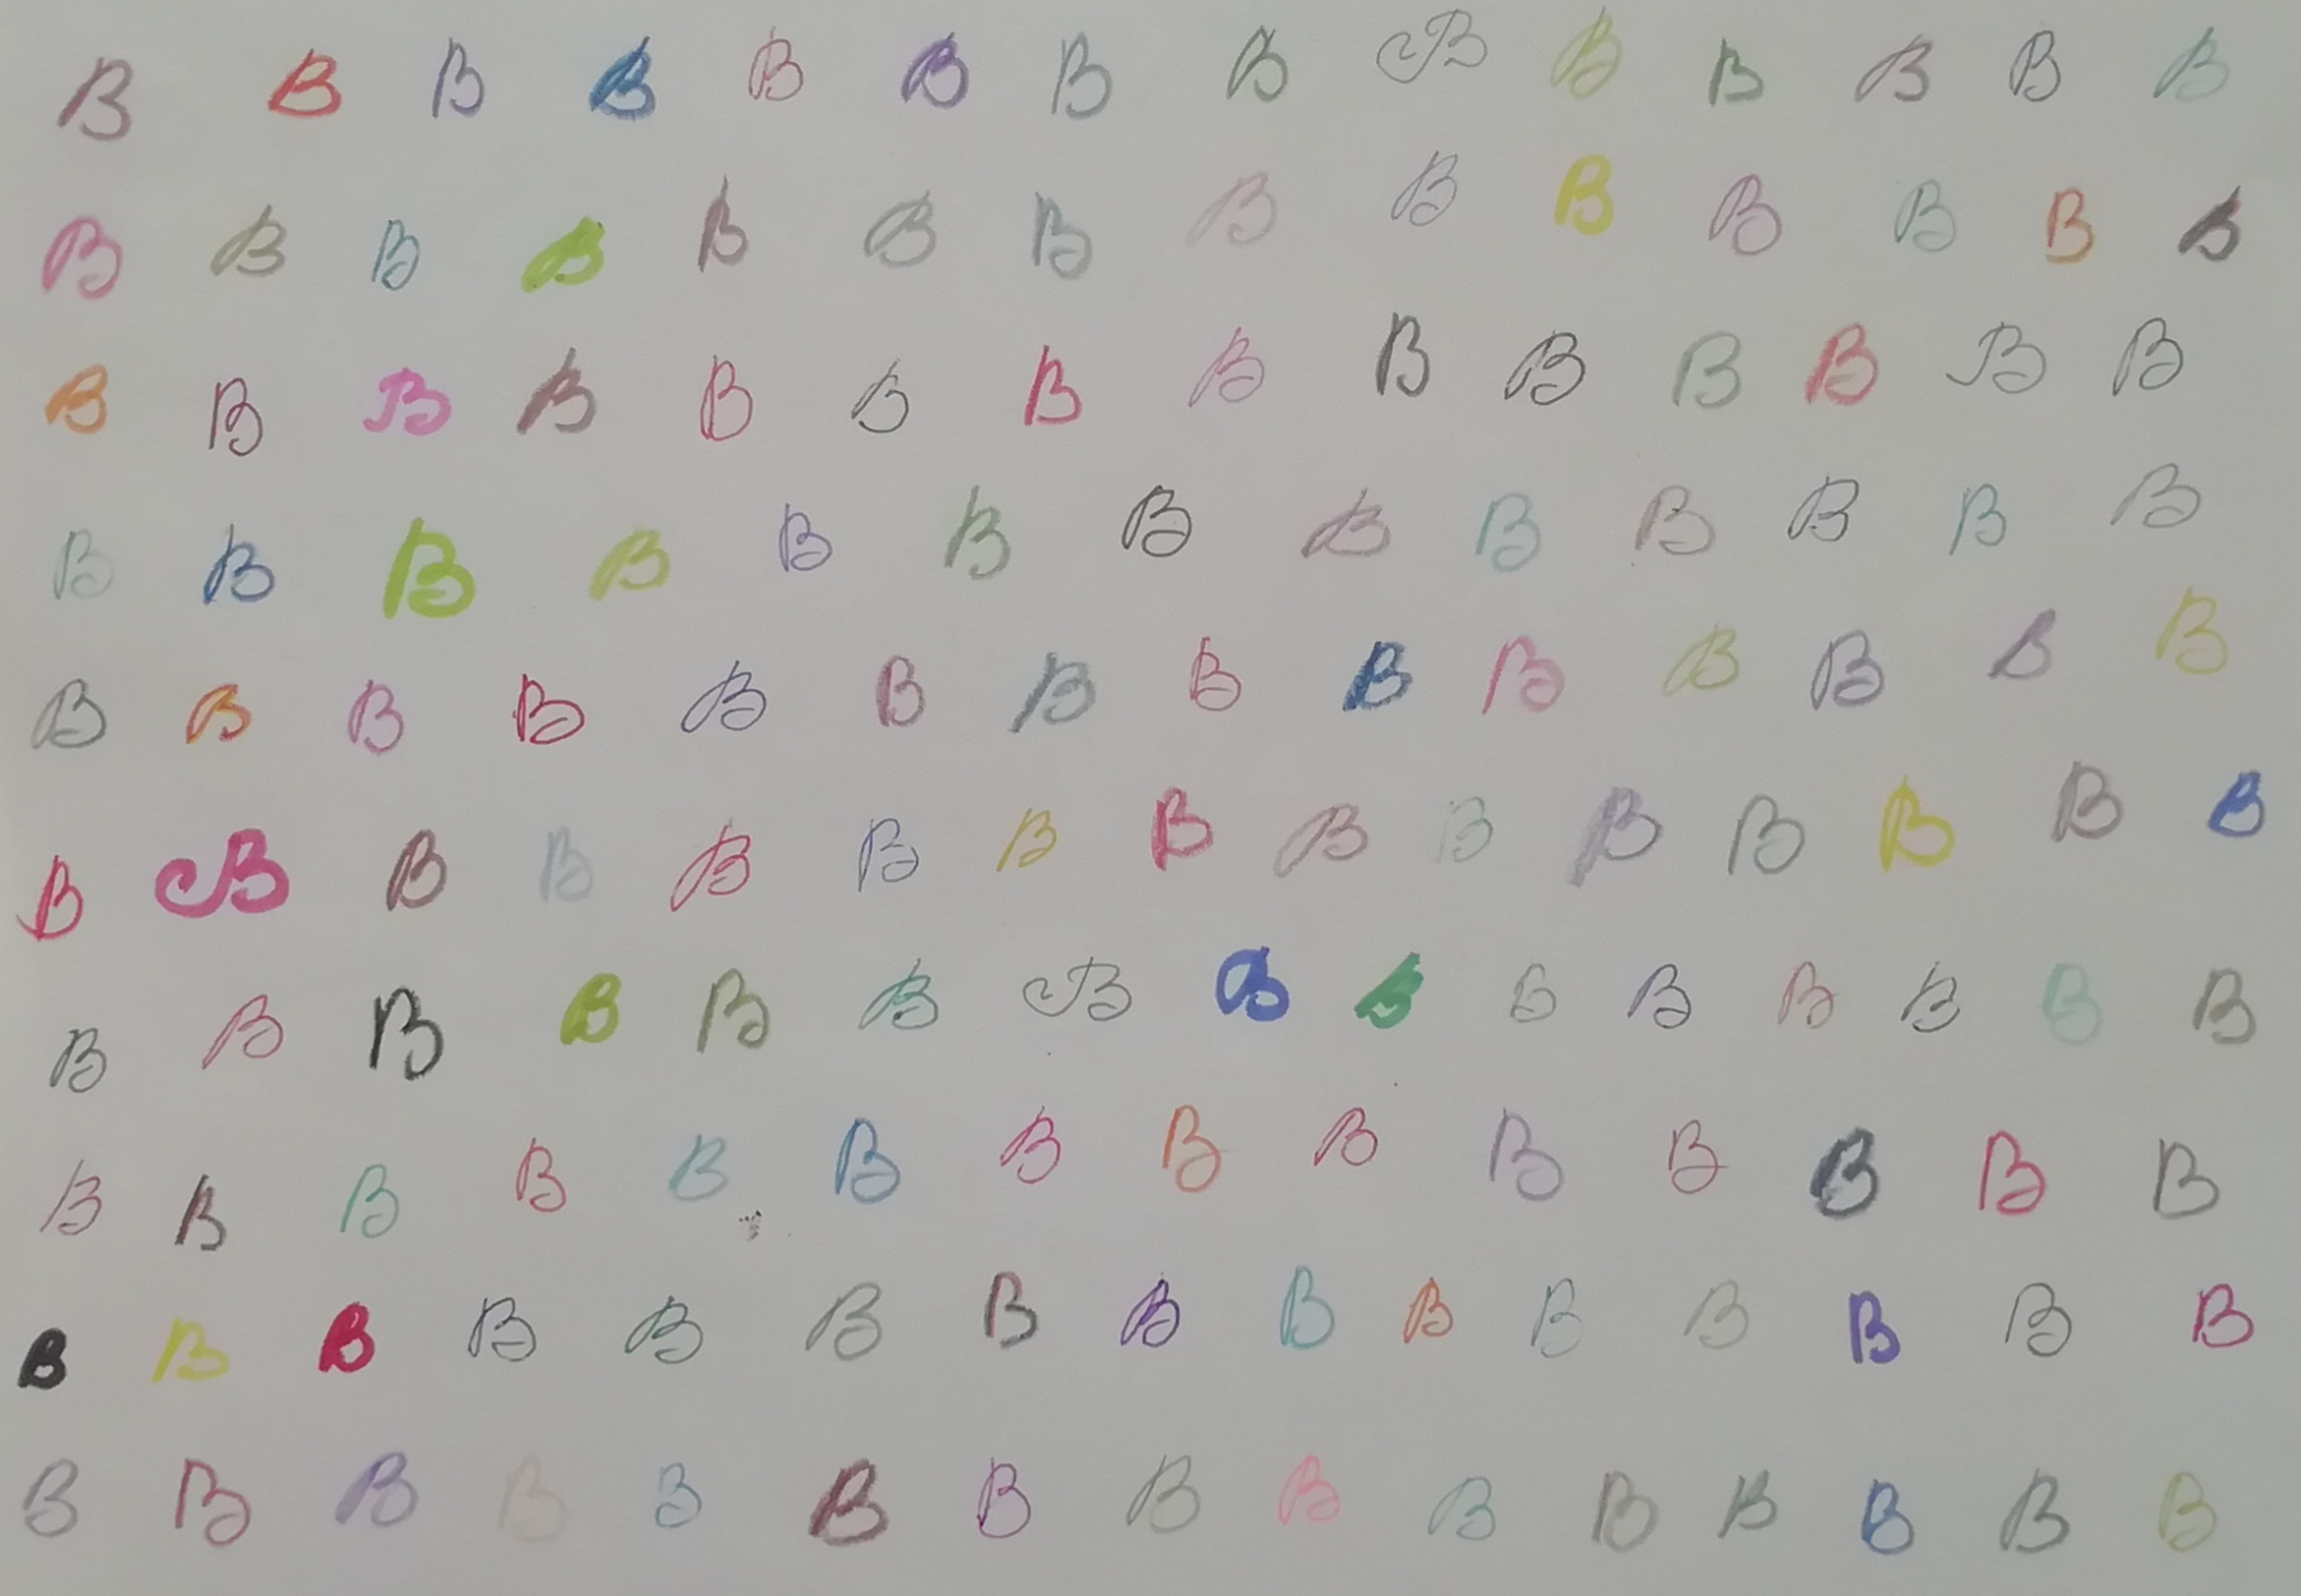 B B B B B B B B B B B B B B
B B B B B B B B B B B B B B
B B B B B B B B B B B B B B
B B B B B B B B B B B B B
B B B B B B B B B B B B B B
B B B B B B B B B B B B B B B
B B B B B B B B B B B B B B B
B B B B B B B B B B B B B B
B B B B B B B B B B B B B B B
B B B B B B B B B B B B B B B